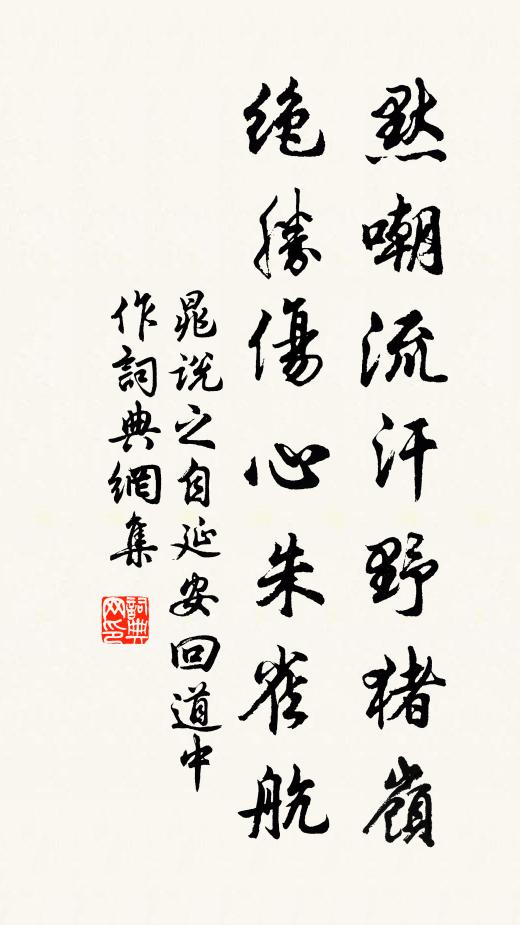 默嘲流汗野猪嶺
絶勝傷心朱雀航
晁说之自延安回道中
作詞典網集
詞典
网印